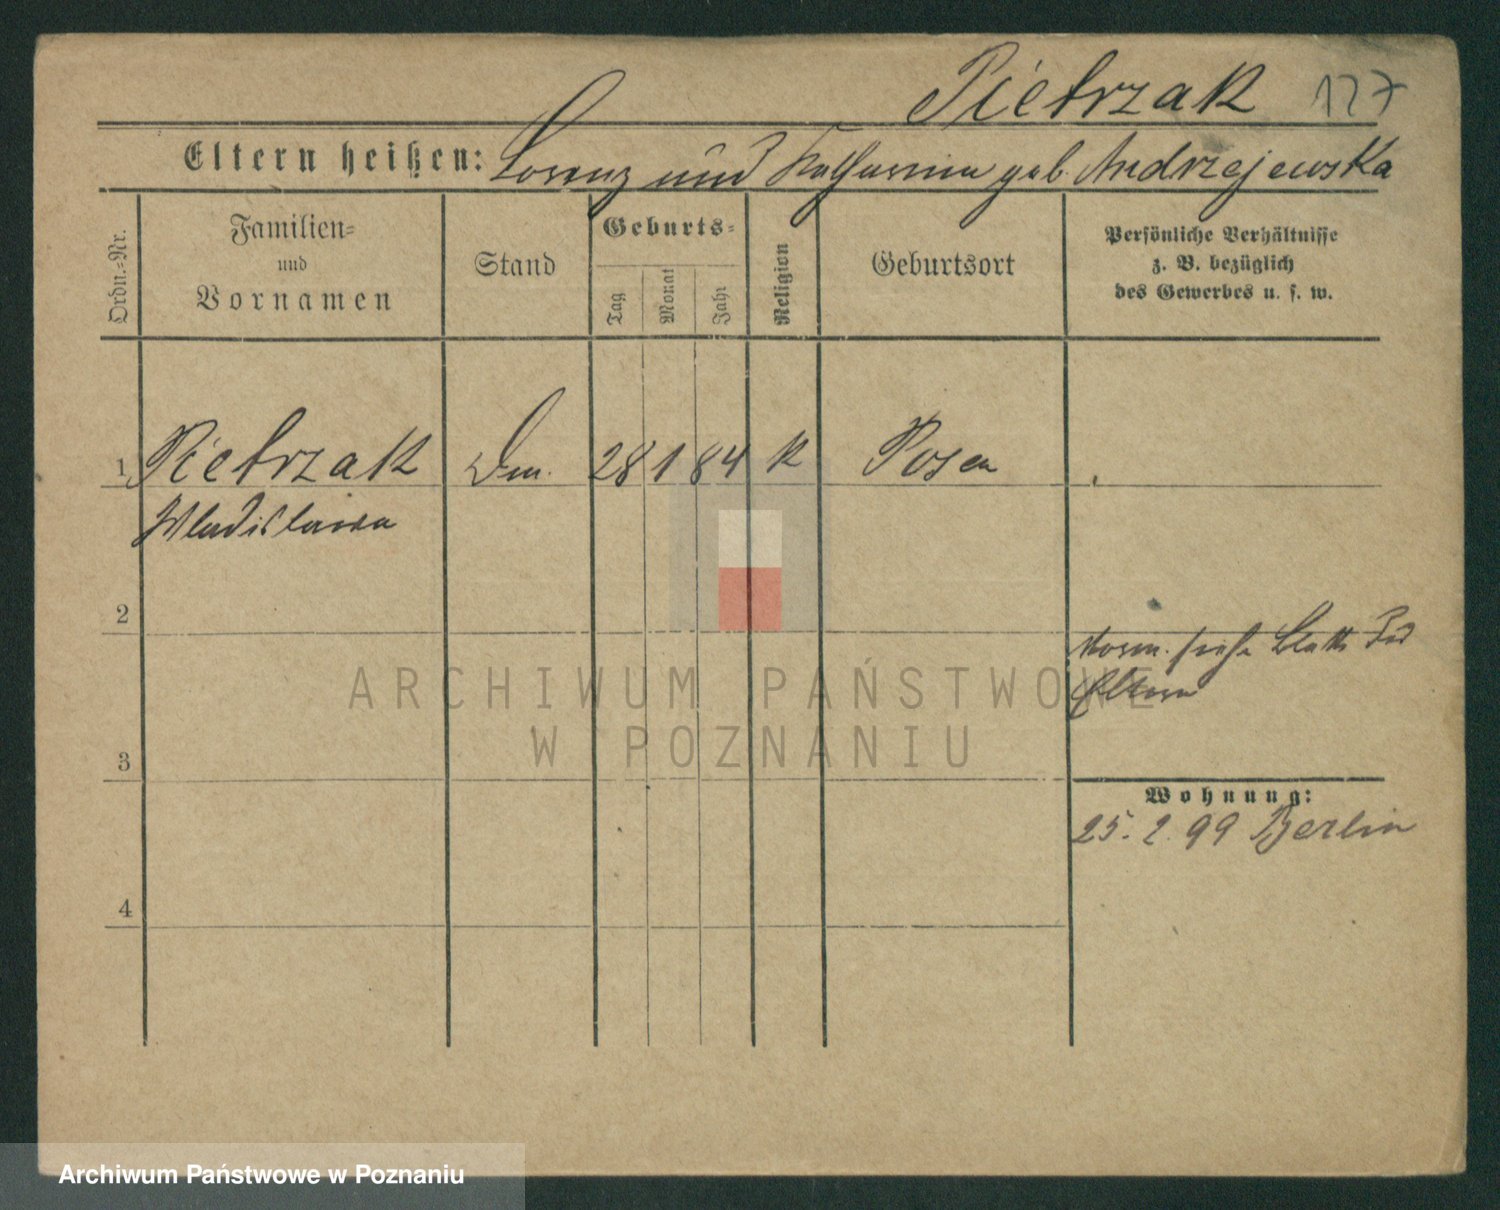 Pietrzak 127
Eltern heißen: Lorenz und Katharina geb. Andrzejewska
Ordn.-Nr.
Familien-
und
Vornamen
Stand
Geburts-
Tag
Monat
Jahr
Religion
Geburtsort
Persönliche Verhältnisse
z. B. bezüglich
des Gewerbes u. s. w.
1 Pietrzak 28 1 84 K Posen
Wladislawa
2
siehe Blatt
Eltern
3
4
Wohnung:
25. 2. 99 Berlin
ARCHIWUM PAŃSTWOWE
W POZNANIU
Archiwum Państwowe w Poznaniu